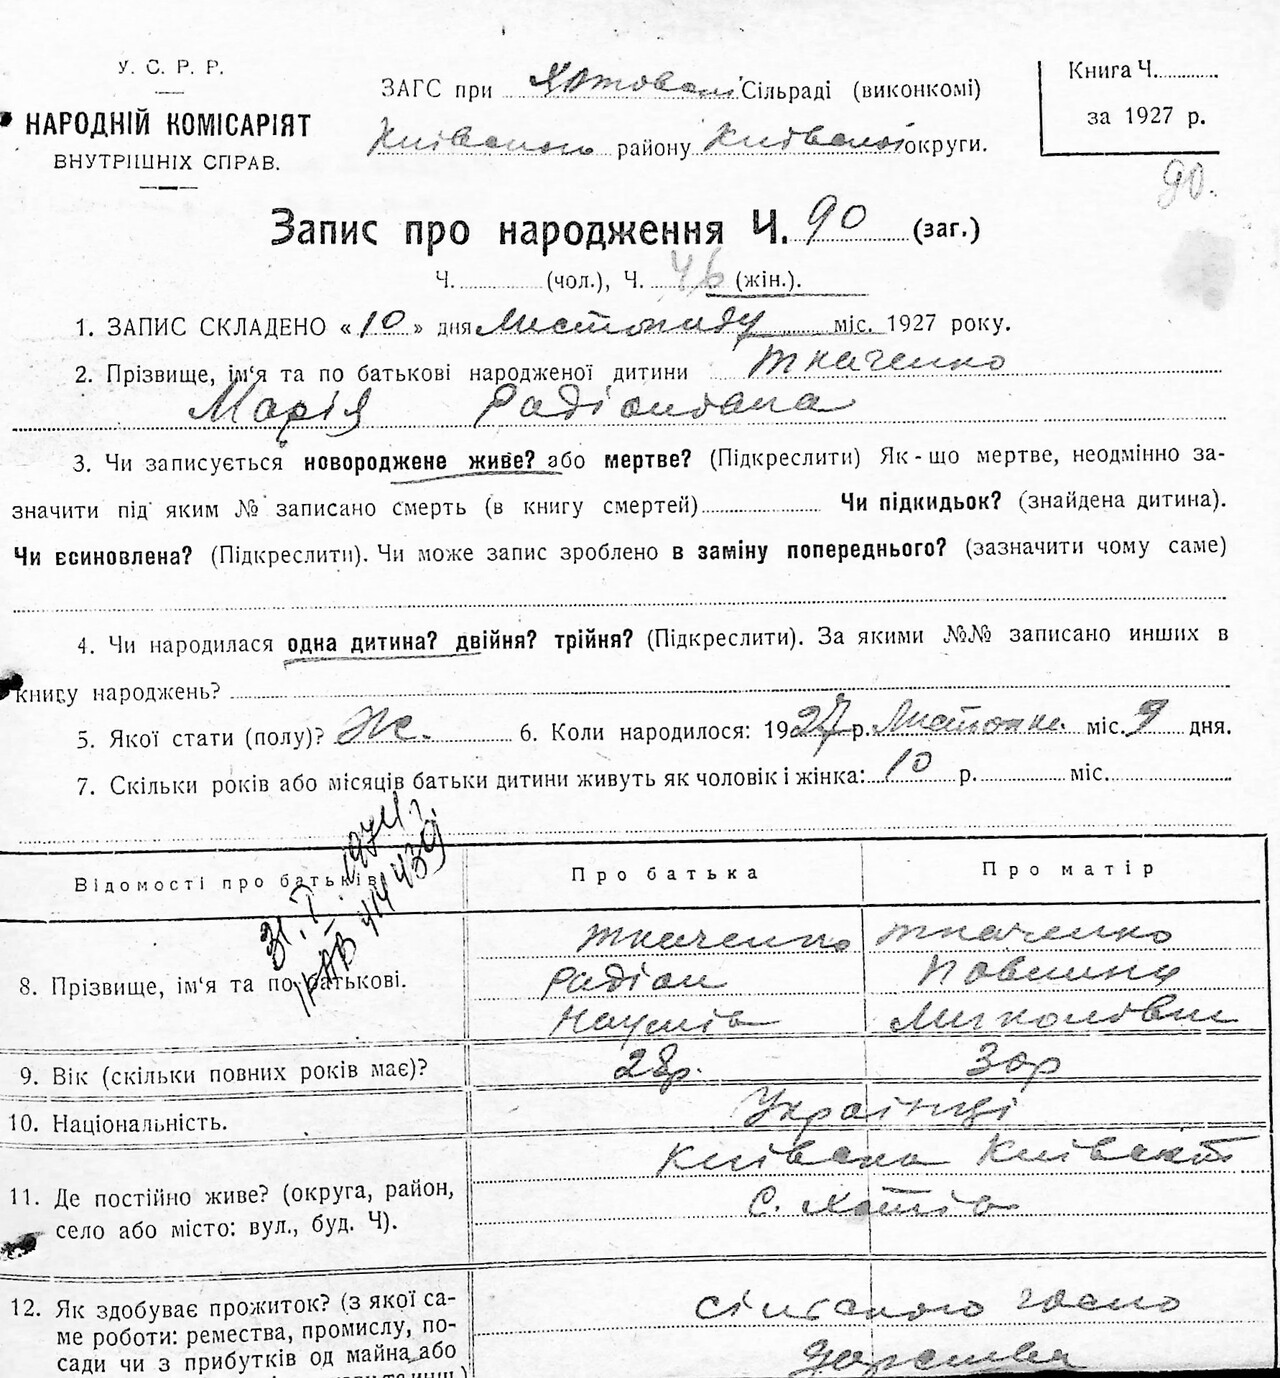 У. С. Р. Р.
НАРОДНІЙ КОМІСАРІЯТ
ВНУТРІШНІХ СПРАВ.
ЗАГС при Хотовській Сільраді (виконкомі)
Київського району Київської округи.
Книга Ч.
за 1927 р.
90.
Запис про народження Ч. 90 (заг.)
Ч. (чол.), Ч. 46 (жін.).
1. ЗАПИС СКЛАДЕНО «10» дня Листопаду міс. 1927 року.
2. Прізвище, ім'я та по батькові народженої дитини Ткаченко
Марія Радіоновна
3. Чи записується новороджене живе? або мертве? (Підкреслити) Як-що мертве, неодмінно за-
значити під яким № записано смерть (в книгу смертей) Чи підкидьок? (знайдена дитина).
Чи всиновлена? (Підкреслити). Чи може запис зроблено в заміну попереднього? (зазначити чому саме)
4. Чи народилася одна дитина? двійня? трійня? (Підкреслити). За якими №№ записано инших в
книгу народжень?
5. Якої стати (полу)? Ж. 6. Коли народилося: 1927 р. Листопа. міс. 9 дня.
7. Скільки років або місяців батьки дитини живуть як чоловік і жінка: 10 р. міс.
Відомості про батьків Про батька Про матір
31. I. 1974 г.
414439
8. Прізвище, ім'я та по батькові.
Ткаченко Ткаченко
Радіон Повлина
Наумів Миколівни
9. Вік (скільки повних років має)? 28р. 30р
10. Національність. Українці
11. Де постійно живе? (округа, район,
село або місто: вул., буд. Ч).
Київська Київськ
С. Хотів
12. Як здобуває прожиток? (з якої са-
ме роботи: ремества, промислу, по-
сади чи з прибутків од майна або
сільського госпо
дарства